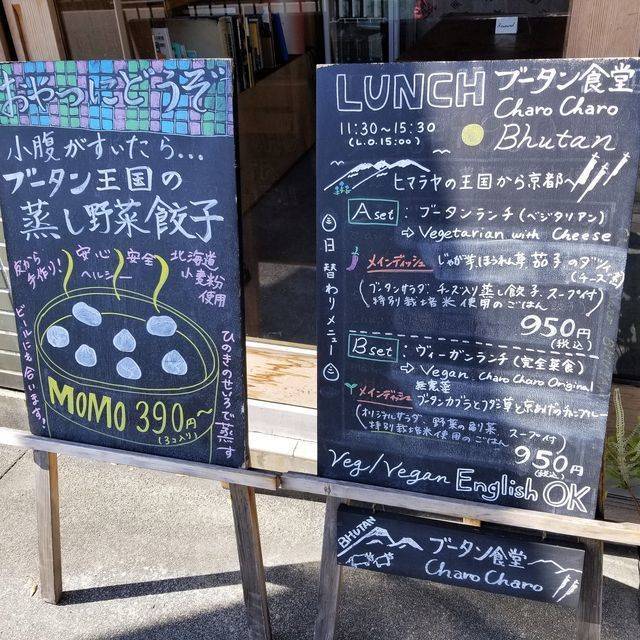 おやつにどうぞ
小腹がすいたら...
ブータン王国の
蒸し野菜餃子
皮から
手作り!
安心
安全
ヘルシー
北海道
小麦粉
使用
ビールにも合います!
ひのきのせいろで蒸す
MOMO 390円~
(3コ入り)
LUNCH ブータン食堂
Charo Charo
11:30~15:30
(L.O.15:00)
Bhutan
ヒマラヤの王国から京都へ
日替わりメニュー
A set : ブータンランチ(ベジタリアン)
⇨ Vegetarian with Cheese
メインディッシュ じゃが芋、ほうれん草、茄子のダツィ
(チーズ煮)
(ブータンサラダ、チーズ入り蒸し餃子、スープ付)
特別栽培米使用のごはん
950円
(税込)
B set : ヴィーガンランチ(完全菜食)
⇨ Vegan Charo Charo Original
無農薬
メインディッシュ
(オリジナルサラダ、野菜の副菜 スープ付)
特別栽培米使用のごはん
950円
(税込)
Veg/Vegan English OK
BHUTAN
ブータン食堂
Charo Charo